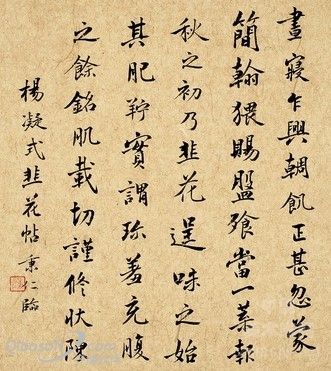 晝寢乍興輖飢正甚忽蒙
簡翰猥賜盤飧當一葉報
秋之初乃韭花逞味之始
其肥羜實謂珍羞充腹
之餘銘肌載切謹修狀陳
楊凝式韭花帖秉仁臨